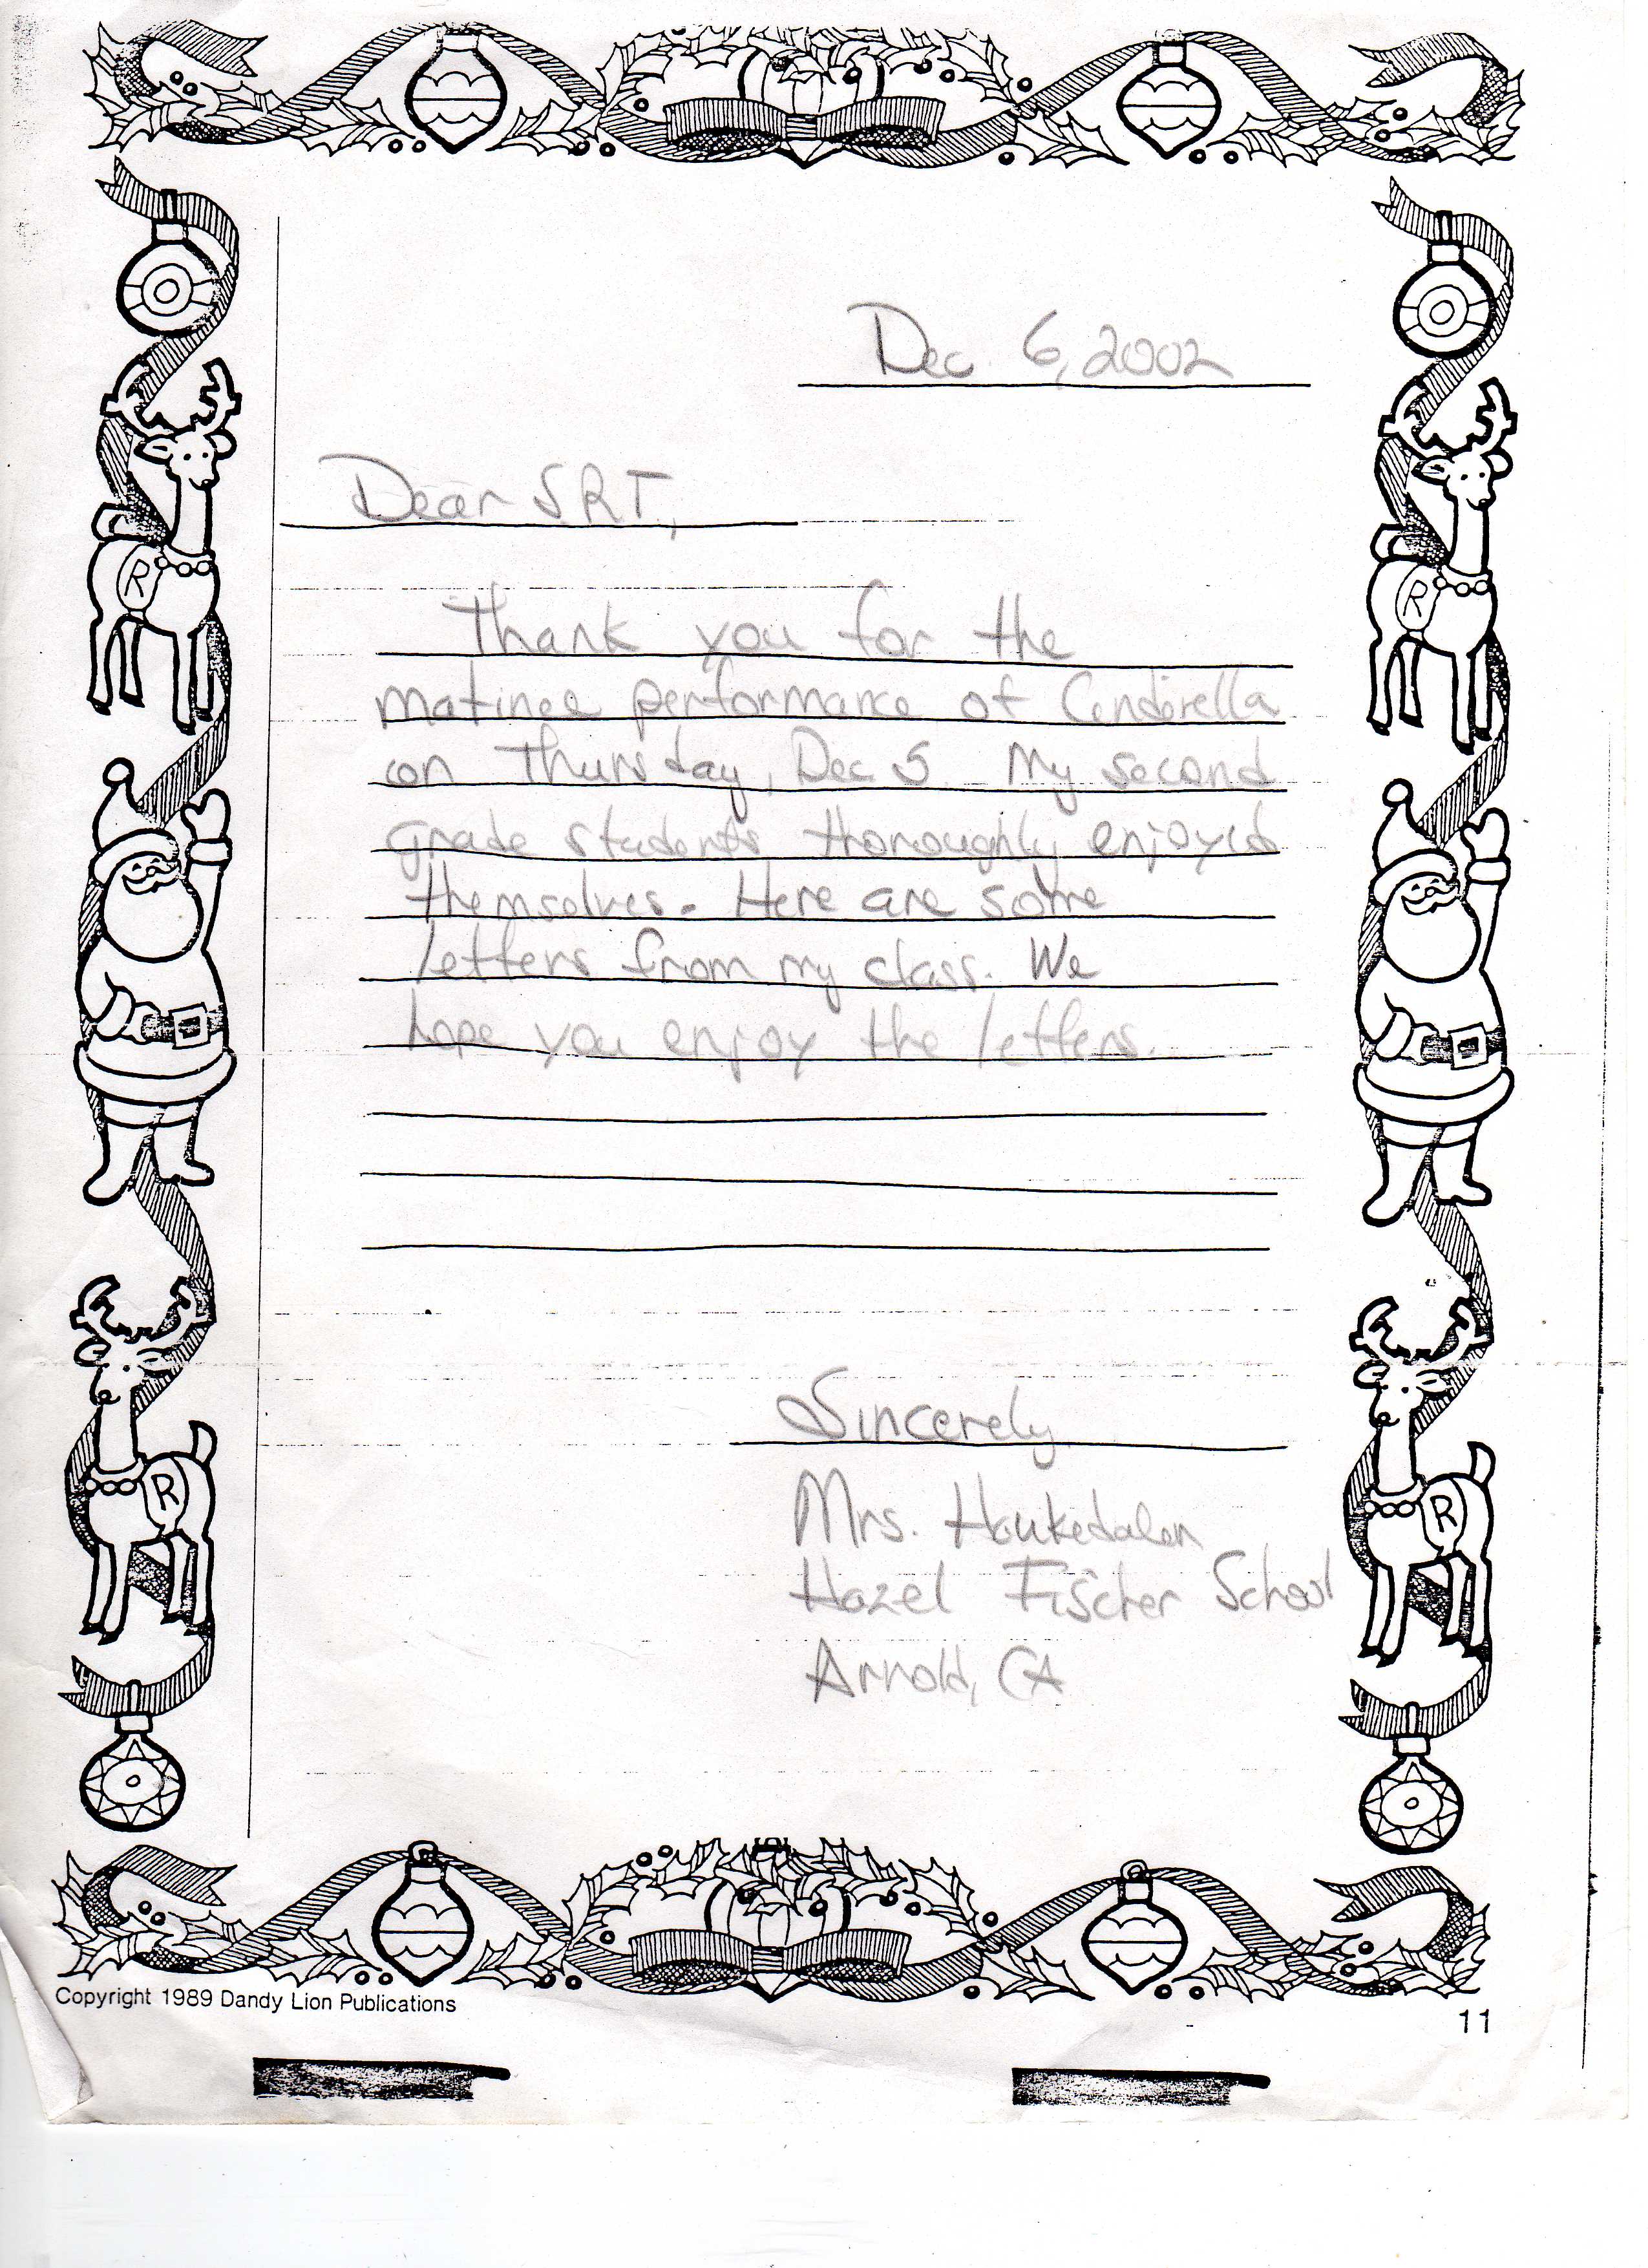 Dec. 6, 2002
Dear SRT,
Thank you for the
matinee performance of Cinderella
on Thursday, Dec 5. My second
grade students thoroughly enjoyed
themselves. Here are some
letters from my class. We
hope you enjoy the letters.
Sincerely
Mrs. Haukedalen
Hazel Fischer School
Arnold, CA
R
R
R
R
Copyright 1989 Dandy Lion Publications
11